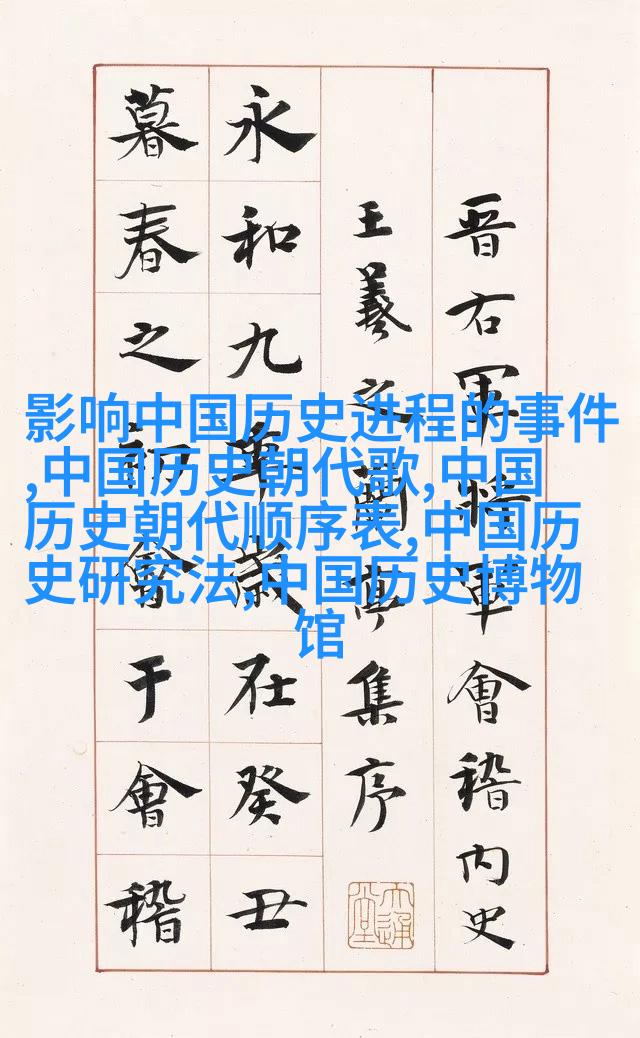 晋右軍將軍會稽内史
王羲之蘭亭集序
永和九年歲在癸丑
暮春之初會于會稽
影响中国历史进程的事件
,中国历史朝代歌,中国
历史朝代顺序表,中国历
史研究法,中国历史博物
馆